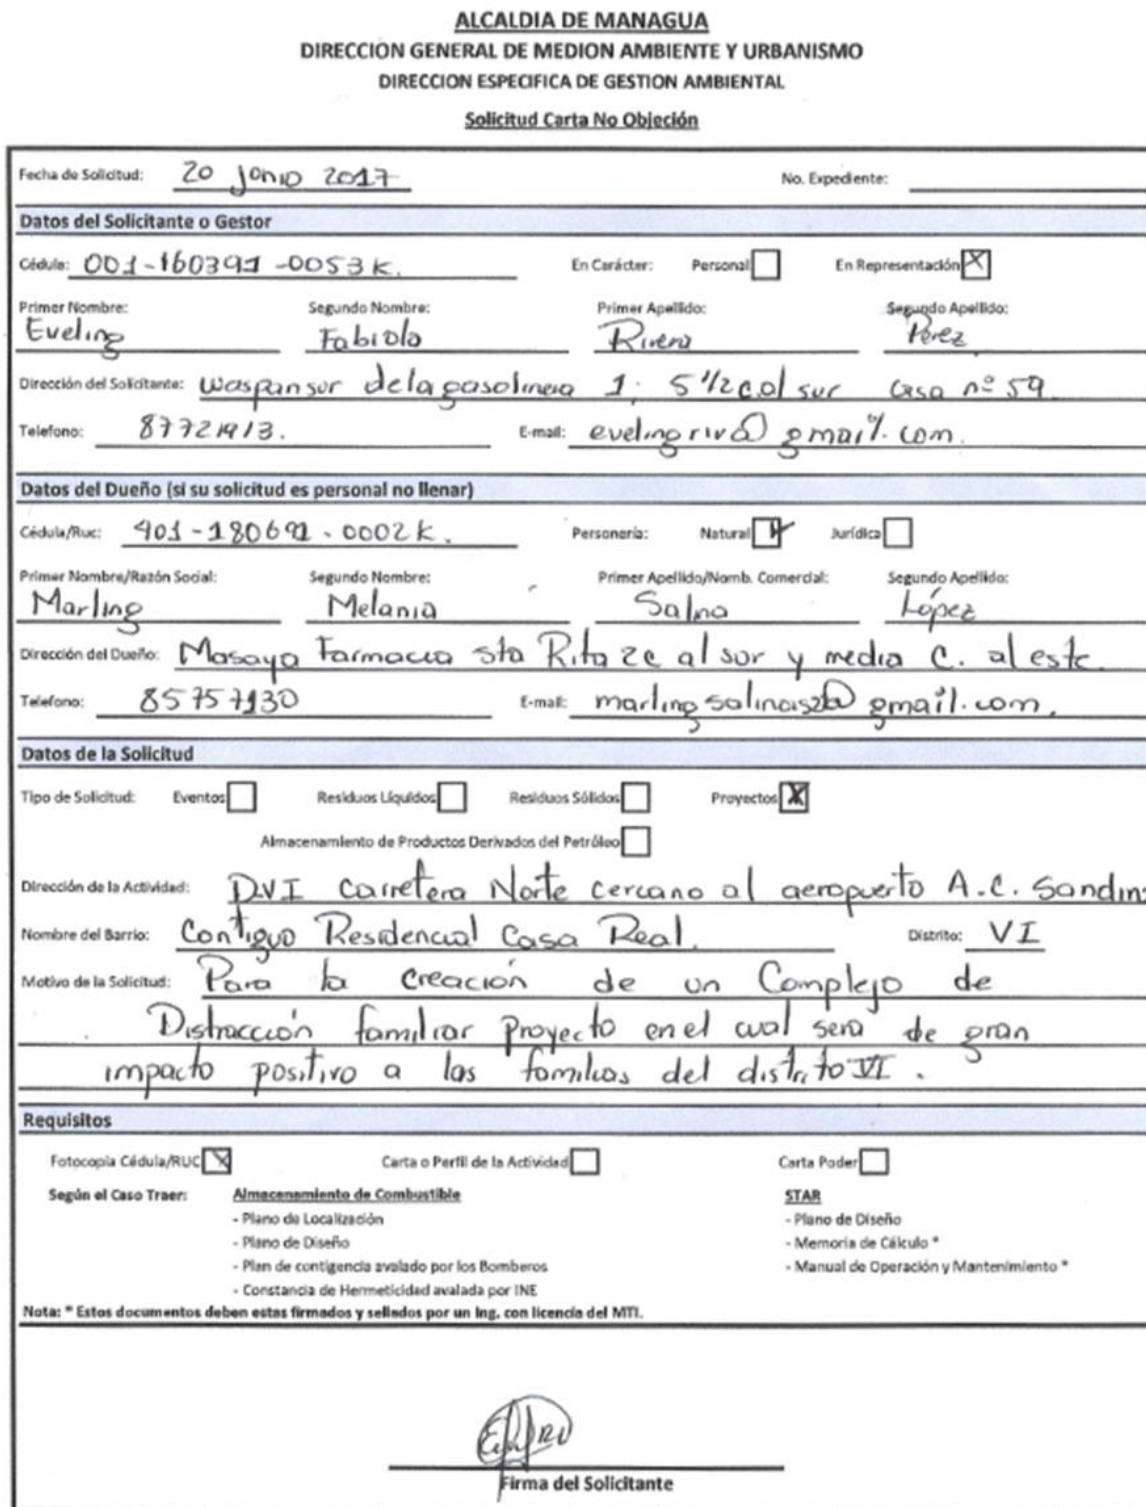 ALCALDIA DE MANAGUA
DIRECCION GENERAL DE MEDION AMBIENTE Y URBANISMO
DIRECCION ESPECIFICA DE GESTION AMBIENTAL
Solicitud Carta No Objeción
Fecha de Solicitud: 20 Junio 2017 No. Expediente:
Datos del Solicitante o Gestor
Cédula: 001-160391-0053K. En Carácter: Personal En Representación X
Primer Nombre: Segundo Nombre: Primer Apellido: Segundo Apellido:
Eveling Fabiola Rivera Pérez
Dirección del Solicitante: Waspan sur de la gasolinera 1. 5 1/2 c.al sur casa nº 59
Telefono: 87721913. E-mail: evelingriv@gmail.com.
Datos del Dueño (si su solicitud es personal no llenar)
Cédula/Ruc: 401-180691-0002K. Personería: Natural Jurídica
Primer Nombre/Razón Social: Segundo Nombre: Primer Apellido/Nomb. Comercial: Segundo Apellido:
Marling Melania López
Dirección del Dueño: Masaya Farmacia sta Rita 2c al sur y media C. al este
Telefono: 85757130 E-mail: @gmail.com.
Datos de la Solicitud
Tipo de Solicitud: Eventos Residuos Líquidos Residuos Sólidos Proyectos X
Almacenamiento de Productos Derivados del Petróleo
Dirección de la Actividad: D.VI Carretera Norte cercano al aeropuerto A.C. Sandin
Nombre del Barrio: Contiguo Residencial Casa Real. Distrito: VI
Motivo de la Solicitud: Para la creación de un Complejo de
Distracción familiar Proyecto en el cual sera de gran
impacto positivo a las familias del distrito VI.
Requisitos
Fotocopia Cédula/RUC X Carta o Perfil de la Actividad Carta Poder
Según el Caso Traer: Almacenamiento de Combustible STAR
- Plano de Localización - Plano de Diseño
- Plano de Diseño - Memoria de Cálculo *
- Plan de contigencia avalado por los Bomberos - Manual de Operación y Mantenimiento *
- Constancia de Hermeticidad avalada por INE
Nota: * Estos documentos deben estas firmados y sellados por un Ing. con licencia del MTI.
Firma del Solicitante